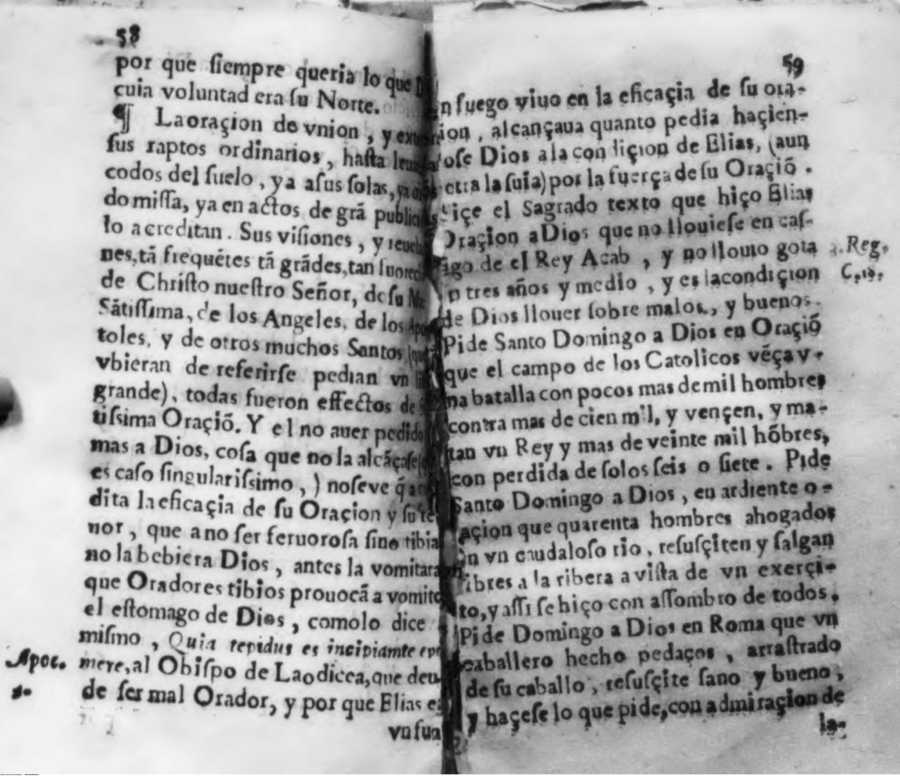 58
por que ſiempre queria lo que
cuia voluntad era ſu Norte.
¶ La oraçion de vnion, y
ſus raptos ordinarios, haſta
codos del ſuelo, ya aſus ſolas,
do miſſa, ya en actos de grã
lo acreditan. Sus viſiones, y
nes, tã frequẽtes tã grãdes, tan
de Chriſto nueſtro Señor, de ſu
Sãtiſſima, de los Angeles, de los
toles, y de otros muchos Santos
vbieran de referirſe pedian vn
grande), todas fueron effectos de
tiſſima Oraçiõ. Y el no auer pedido
mas a Dios, coſa que no la
es caſo ſingulariſſimo, ) noſeve q̃
dita la eficaçia de ſu Oraçion y ſu
nor, que a no ſer feruoroſa ſino tibia
no la bebiera Dios, antes la vomitara
que Oradores tibios prouocã a vomito
el eſtomago de Dios, comolo dice
miſmo, Quia tepidus es incipiamte
mere, al Obiſpo de Laodicea, que
de ſer mal Orador, y por que Elias
Apoc.
3.
vn fue
59
n fuego viuo en la eficaçia de ſu ora-
ion, alcançaua quanto pedia haçien-
oſe Dios a la condiçion de Elias, (aun
otra la ſuia) por la fuerça de ſu Oraçiõ.
içe el Sagrado texto que hiço Elias
Oraçion a Dios que no llouieſe en caſ-
igo de el Rey Acab, y no llouio gota
n tres años y medio, y es la condiçion
de Dios llouer ſobre malos, y buenos.
Pide Santo Domingo a Dios en Oraçiõ
que el campo de los Catolicos vẽça v-
na batalla con pocos mas de mil hombres
contra mas de cien mil, y vençen, y ma-
tan vn Rey y mas de veinte mil hõbres,
con perdida de ſolos ſeis o ſiete. Pide
Santo Domingo a Dios, en ardiente o-
raçion que quarenta hombres ahogados
en vn caudaloſo rio, reſuſçiten y ſalgan
libres a la ribera a viſta de vn exerçi-
to, y aſſi ſe hiço con aſſombro de todos.
Pide Domingo a Dios en Roma que vn
caballero hecho pedaços, arraſtrado
de ſu caballo, reſuſçite ſano y bueno,
y haçeſe lo que pide, con admiraçion de
Reg.
la-